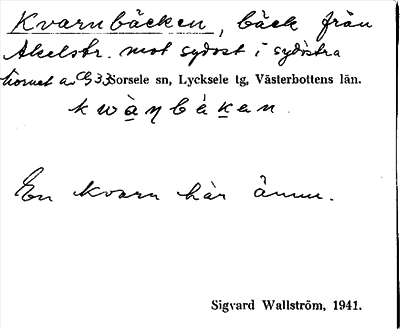 Kvarnbäcken, bäck från
Akelstr. mot sydost i sydöstra
hörnet av G33 Sorsele sn, Lycksele tg, Västerbottens län.
kwàṇbäken
En kvarn här ännu.
Sigvard Wallström, 1941.